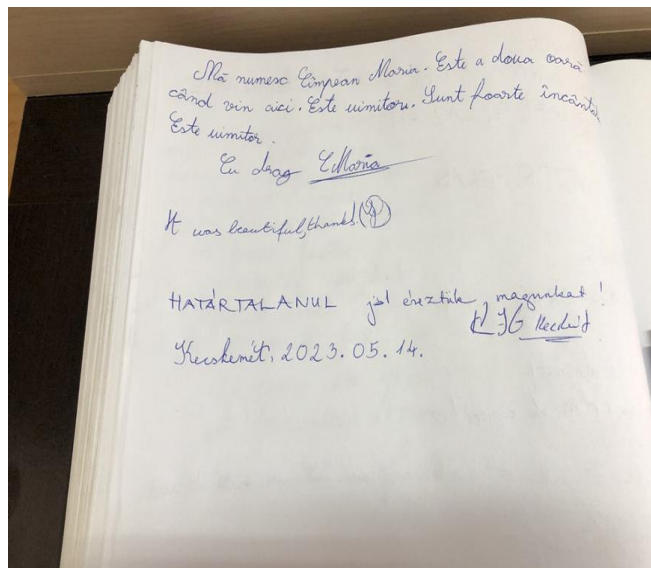 Mă numesc Cîmpean Maria. Este a doua oară
când vin aici. Este uimitoru. Sunt foarte încântă
Este uimitor.
Cu drag CMaria
It was beautiful, thanks!
HATÁRTALANUL jól éreztük magunkat!
Kecskemét, 2023. 05. 14.